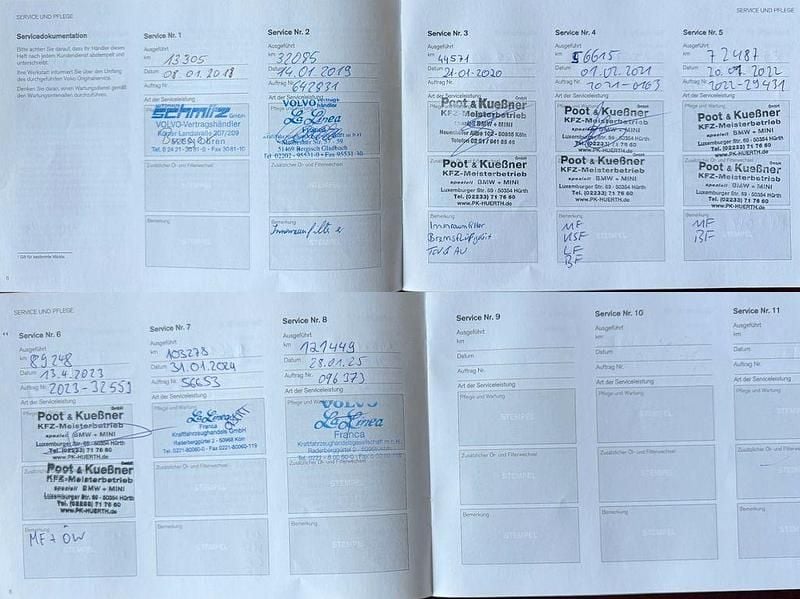 SERVICE UND PFLEGE
Servicedokumentation
Bitte achten Sie darauf, dass Ihr Händler dieses
Heft nach jedem Kundendienst abstempelt und
unterschreibt.
Ihre Werkstatt informiert Sie über den Umfang
des durchgeführten Volvo Originalservice.
Denken Sie daran, einen Wartungsdienst gemäß
den Wartungsintervallen durchzuführen.
Service Nr. 1
Ausgeführt
km 13305
Datum 08.01.2018
Auftrag Nr.
Art der Serviceleistung
schmitz GmbH
VOLVO-Vertragshändler
Kölner Landstraße 207/209
Düren
Zusätzlicher Öl- und Filterwechsel
Bemerkung
Service Nr. 2
Ausgeführt
km 32085
Datum 14.01.2019
Auftrag Nr. 642831
Art der Serviceleistung
VOLVO
La Linea
51469 Bergisch Gladbach
Tel. 02202 - 95531-0 · Fax 95531-30
Zusätzlicher Öl- und Filterwechsel
Bemerkung
STEMPEL
SERVICE UND PFLEGE
Service Nr. 3
Ausgeführt
km 44571
Datum 21.01.2020
Auftrag Nr.
Art der Serviceleistung
Poot & Kueßner GmbH
KFZ-Meisterbetrieb
speziell BMW + MINI
Poot & Kueßner GmbH
KFZ-Meisterbetrieb
speziell BMW + MINI
Luxemburger Str. 69 · 50354 Hürth
Tel. (02233) 71 76 60
www.PK-HUERTH.de
Bemerkung
Innenraumfilter
Bremsflüssigkeit
TÜV AU
Service Nr. 4
Ausgeführt
km 56615
Datum 01.02.2021
Auftrag Nr. 2021-0163
Art der Serviceleistung
Poot & Kueßner GmbH
KFZ-Meisterbetrieb
speziell BMW + MINI
Luxemburger Str. 69 · 50354 Hürth
Tel. (02233) 71 76 60
www.PK-HUERTH.de
Poot & Kueßner GmbH
KFZ-Meisterbetrieb
speziell BMW + MINI
Luxemburger Str. 69 · 50354 Hürth
Tel. (02233) 71 76 60
www.PK-HUERTH.de
Bemerkung
MF
KSF
LF
BF
Service Nr. 5
Ausgeführt
km 72487
Datum 20.01.2022
Auftrag Nr. 2022-29431
Art der Serviceleistung
Pflege und Wartung
Poot & Kueßner GmbH
KFZ-Meisterbetrieb
speziell BMW + MINI
Luxemburger Str. 69 · 50354 Hürth
Tel. (02233) 71 76 60
www.PK-HUERTH.de
Poot & Kueßner GmbH
KFZ-Meisterbetrieb
speziell BMW + MINI
Luxemburger Str. 69 · 50354 Hürth
Tel. (02233) 71 76 60
www.PK-HUERTH.de
Bemerkung
MF
BF
SERVICE UND PFLEGE
Service Nr. 6
Ausgeführt
km 89248
Datum 13.4.2023
Auftrag Nr. 2023-32553
Art der Serviceleistung
Poot & Kueßner GmbH
KFZ-Meisterbetrieb
speziell BMW + MINI
Luxemburger Str. 69 · 50354 Hürth
Tel. (02233) 71 76 60
www.PK-HUERTH.de
Poot & Kueßner GmbH
KFZ-Meisterbetrieb
speziell BMW + MINI
Luxemburger Str. 69 · 50354 Hürth
Tel. (02233) 71 76 60
www.PK-HUERTH.de
Bemerkung
MF + ÖW
STEMPEL
Service Nr. 7
Ausgeführt
km 103278
Datum 31.01.2024
Auftrag Nr. 56653
Art der Serviceleistung
Pflege und Wartung
La Linea
Franca
Kraftfahrzeughandels GmbH
Raderberggürtel 2 · 50968 Köln
Tel. 0221-80060-0 · Fax 0221-80060-119
Zusätzlicher Öl- und Filterwechsel
Bemerkung
Service Nr. 8
Ausgeführt
km 121449
Datum 28.01.25
Auftrag Nr. 096373
Art der Serviceleistung
Pflege und Wartung
VOLVO
La Linea
Franca
Kraftfahrzeughandelsgesellschaft m.b.H.
Raderberggürtel 2 · 50968 Köln
Zusätzlicher Öl- und Filterwechsel
Bemerkung
STEMPEL
Service Nr. 9
Ausgeführt
km
Datum
Auftrag Nr.
Art der Serviceleistung
Pflege und Wartung
Zusätzlicher Öl- und Filterwechsel
Bemerkung
STEMPEL
Service Nr. 10
Ausgeführt
km
Datum
Auftrag Nr.
Art der Serviceleistung
Pflege und Wartung
Zusätzlicher Öl- und Filterwechsel
Bemerkung
STEMPEL
Service Nr. 11
Ausgeführt
km
Datum
Auftrag Nr.
Art der Serviceleistung
Pflege und Wartung
Zusätzlicher Öl- und Filterwechsel
Bemerkung